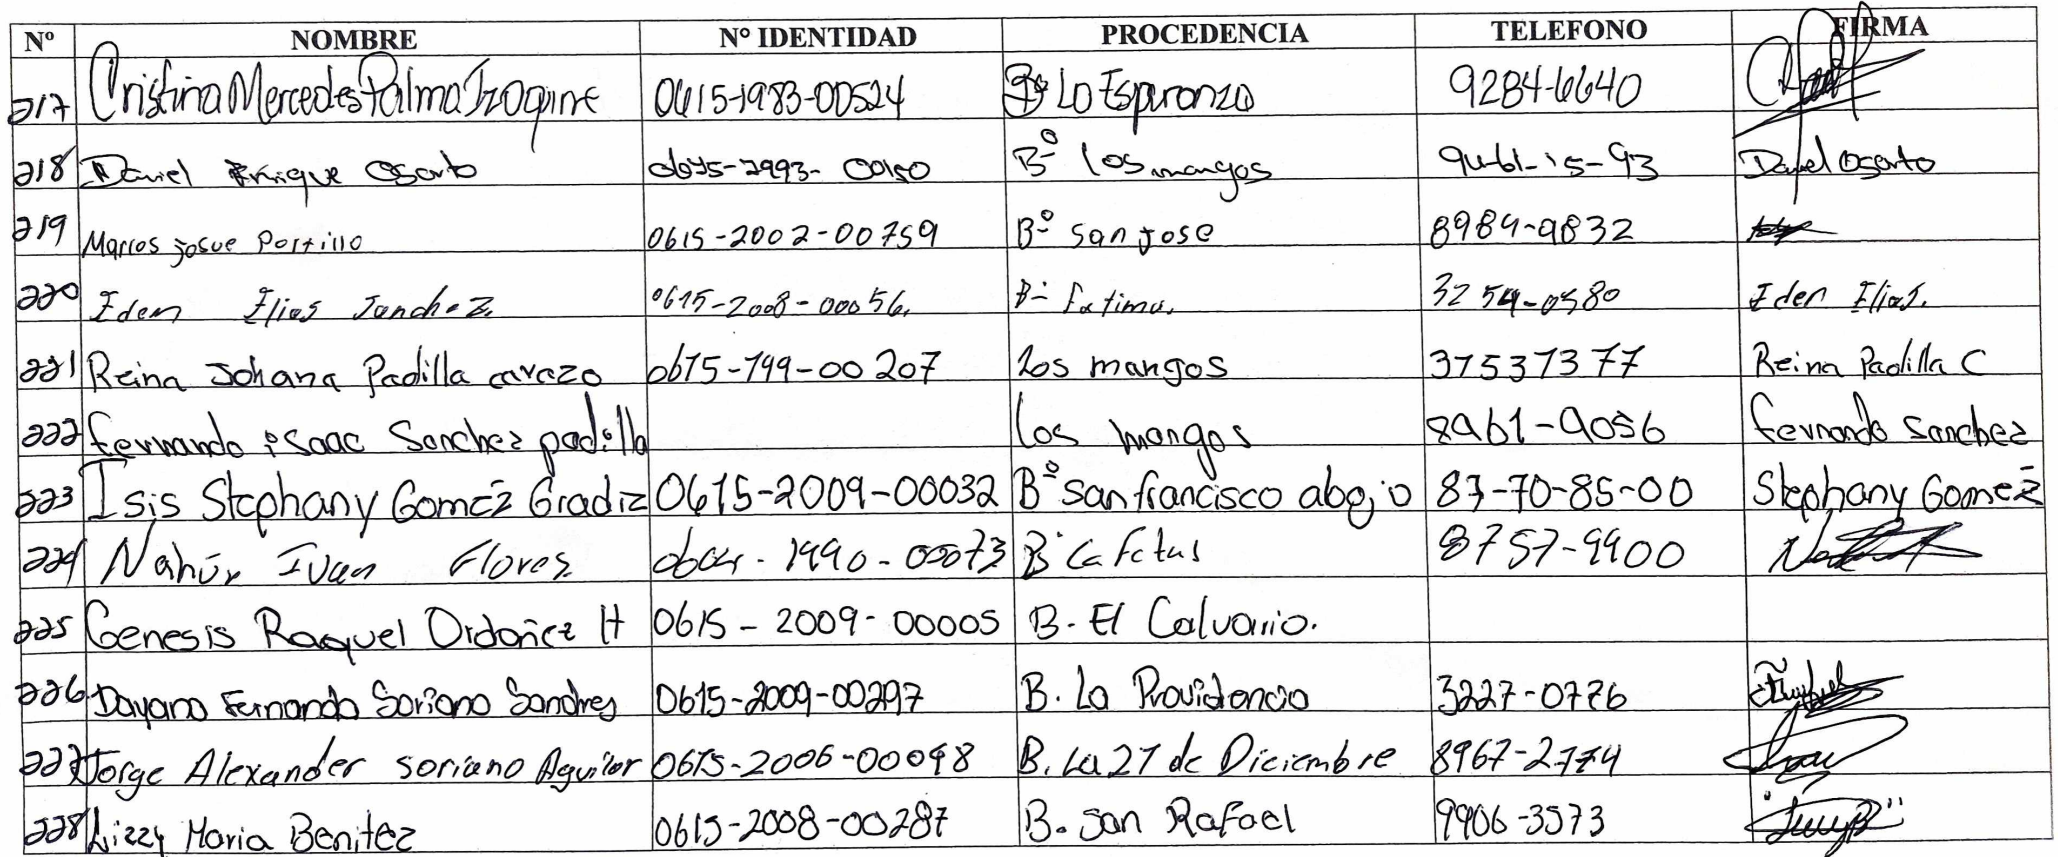 Nº NOMBRE Nº IDENTIDAD PROCEDENCIA TELEFONO FIRMA
217 Cristina Mercedes Palma Izaguirre 0615-1983-00524 Bº La Esperanza 9284-6640
218 Daniel Enrique Osorto 0615-1993-00150 Bº los mangos 9461-15-93 Daniel Osorto
219 Marcos josue Portillo 0615-2002-00759 Bº san jose 8984-9832
220 Eden Elias Sanchez. 0615-2008-00056. B- fatima. 3254-0580 Eden Elias.
221 Reina Johana Padilla cavazo 0615-199-00207 Los mangos 31537377 Reina Padilla C
222 fernando isaac Sanchez padilla los mangos 8961-9056 fernando sanchez
223 Isis Stephany Gomez Gradiz 0615-2009-00032 Bº san francisco abajo 87-70-85-00 Stephany Gomez
224 Nahúr Ivan Flores 0604-1990-00073 Bº Cafetus 8757-9900
225 Genesis Raquel Ordoñez H 0615-2009-00005 B. El Calvario.
226 Dayana Fernanda Soriano Sandres 0615-2009-00297 B. La Providencia 3227-0776
227 Jorge Alexander soriano Aguilar 0615-2006-00098 B. La 27 de Diciembre 8967-2774
228 Lizzy Maria Benitez 0615-2008-00287 B. San Rafael 9906-3573